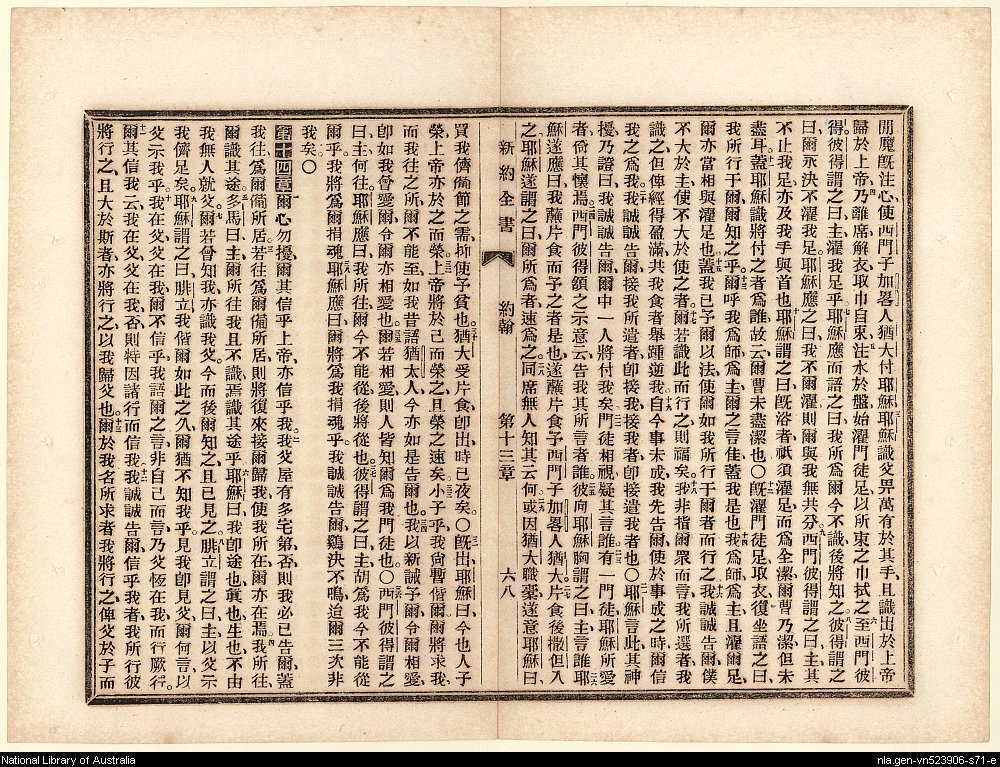 間魔旣注心使西門子加畧人猶大付耶穌三耶穌識父畀萬有於其手且識出於上帝
歸於上帝四乃離席解衣取巾自束五注水於盤始濯門徒足以所束之巾拭之六至西門彼
得彼得謂之曰主濯我足乎七耶穌應而語之曰我所爲爾今不識後將知之八彼得謂之
曰爾永決不濯我足耶穌應之曰我不爾濯則與我無共分九西門彼得謂之曰主其
不止我足亦及我手與首也十耶穌謂之曰旣浴者祇須濯足而爲全潔爾曹乃潔但未
盡耳十一蓋耶穌識將付之者爲誰故云爾曹未盡潔也〇十二旣濯門徒足取衣復坐語之曰
我所行于爾爾知之乎十三爾呼我爲師爲主爾之言佳蓋我是也十四我爲師爲主且濯爾足
爾亦當相與濯足也十五蓋我已予爾以法使爾如我所行于爾者而行之十六我誠誠告爾僕
不大於主使不大於使之者十七爾若識此而行之則福矣十八我非指爾衆而言我所選者我
識之但俾經得盈滿共我食者舉踵逆我十九自今事未成我先告爾使於事成之時爾信
我之爲我二十我誠誠告爾接我所遣者卽接我接我者卽接遣我者也〇二一耶穌言此其神
擾乃證曰我誠誠告爾爾中一人將付我矣二二門徒相視疑其言誰二三有一門徒耶穌所愛
者倚其懷焉二四西門彼得頷之示意云告我其所言者誰二五彼向耶穌胸謂之曰主言誰二六耶
穌遂應曰我蘸片食而予之者是也遂蘸片食予西門子加畧人猶大二七片食後撒但入
之耶穌遂謂之曰爾所爲者速爲之二八同席無人知其云何二九或因猶大職橐遂意耶穌曰
新約全書 約翰 第十三章 六八
買我儕備節之需抑使予貧也三十猶大受片食卽出時已夜矣〇三一旣出耶穌曰今也人子
榮上帝亦於之而榮三二上帝將於己而榮之且榮之速矣三三小子乎我尙暫偕爾爾將求我
而我往之所爾不能至如我昔語猶太人今亦如是告爾也三四我以新誡予爾令爾相愛
卽如我曾愛爾令爾亦相愛也三五爾若相愛則人皆知爾爲我門徒也〇三六西門彼得謂之
曰主何往耶穌曰我所往爾今不能從後將從也三七彼得謂之曰主胡爲我今不能從
爾乎我將爲爾捐魂三八耶穌應曰爾將爲我捐魂乎我誠誠告爾鷄決不鳴迨爾三次非
我矣〇
第十四章一爾心勿擾爾其信乎上帝亦信乎我二我父屋有多宅第否則我必已告爾蓋
我往爲爾備所居三若往爲爾備所居則將復來接爾歸我使我所在爾亦在焉四我所往
爾識其途五多馬曰主爾所往我且不識焉識其途乎六耶穌曰我卽途也眞也生也不由
我無人就父七爾若曾知我亦識我父今而後爾知之且已見之八腓立謂之曰主以父示
我儕足矣九耶穌謂之曰腓立我偕爾如此之久爾猶不知我乎見我卽見父爾何言以
父示我乎十我在父父在我爾不信乎我語爾之言非自己而言乃父恆在我而行厥行
十一爾其信我云我在父父在我否則特因諸行而信我十二我誠誠告爾信乎我者我所行彼
將行之且大於斯者亦將行之以我歸父也十三爾於我名所求者我將行之俾父於子而
National Library of Australia
nla.gen-vn523906-s71-e